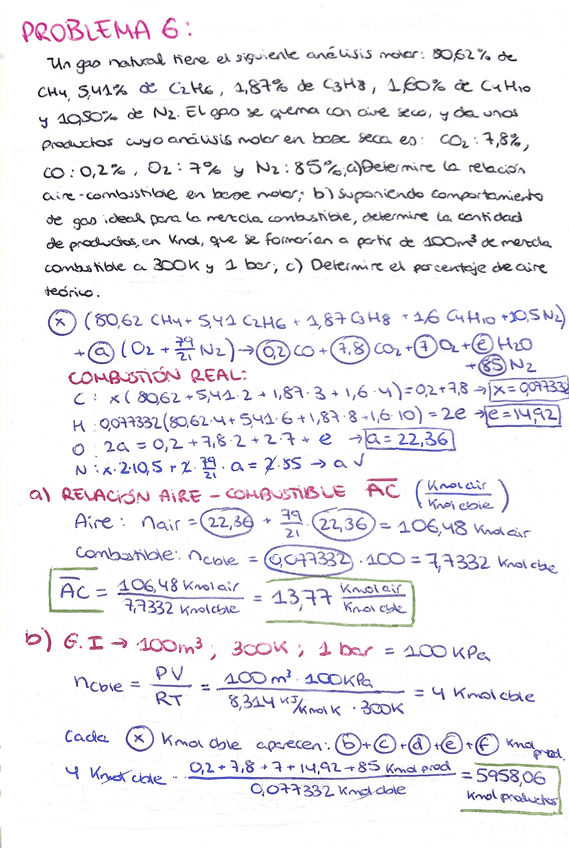 PROBLEMA 6:
Un gas natural tiene el siguiente análisis molar: 80,62% de
CH4, 5,41% de C2H6, 1,87% de C3H8, 1,60% de C4H10
y 10,50% de N2. El gas se quema con aire seco, y da unos
productos cuyo análisis molar en base seca es: CO2: 7,8%,
CO: 0,2%, O2: 7% y N2: 85%, a) Determine la relación
aire-combustible en base molar; b) suponiendo comportamiento
de gas ideal para la mezcla combustible, determine la cantidad
de productos, en Kmol, que se formarían a partir de 100m³ de mezcla
combustible a 300K y 1 bar; c) Determine el porcentaje de aire
teórico.
x (80,62 CH4 + 5,41 C2H6 + 1,87 C3H8 + 1,6 C4H10 + 10,5 N2)
+ a (O2 + 79/21 N2) → 0,2 CO + 7,8 CO2 + 7 O2 + e H2O
+ 85 N2
COMBUSTIÓN REAL:
C: x (80,62 + 5,41·2 + 1,87·3 + 1,6·4) = 0,2 + 7,8 → x = 0,077332
H: 0,077332 (80,62·4 + 5,41·6 + 1,87·8 + 1,6·10) = 2e → e = 14,92
O: 2a = 0,2 + 7,8·2 + 2·7 + e → a = 22,36
N: x·2·10,5 + 2·79/21·a = 2·85 → a ✓
a) RELACIÓN AIRE - COMBUSTIBLE AC (Kmol air/Kmol cble)
Aire: nair = 22,36 + 79/21 · 22,36 = 106,48 Kmol air
Combustible: ncble = 0,077332 · 100 = 7,7332 Kmol cble
AC = 106,48 Kmol air / 7,7332 Kmol cble = 13,77 Kmol air / Kmol cble
b) G.I → 100m³; 300K; 1 bar = 100 KPa
ncble = PV/RT = 100 m³ · 100KPa / 8,314 KJ/Kmol K · 300K = 4 Kmol cble
Cada x Kmol cble aparecen: b + c + d + e + f Kmol prod.
4 Kmol cble · 0,2 + 7,8 + 7 + 14,92 + 85 Kmol prod / 0,077332 Kmol cble = 5958,06 Kmol productos